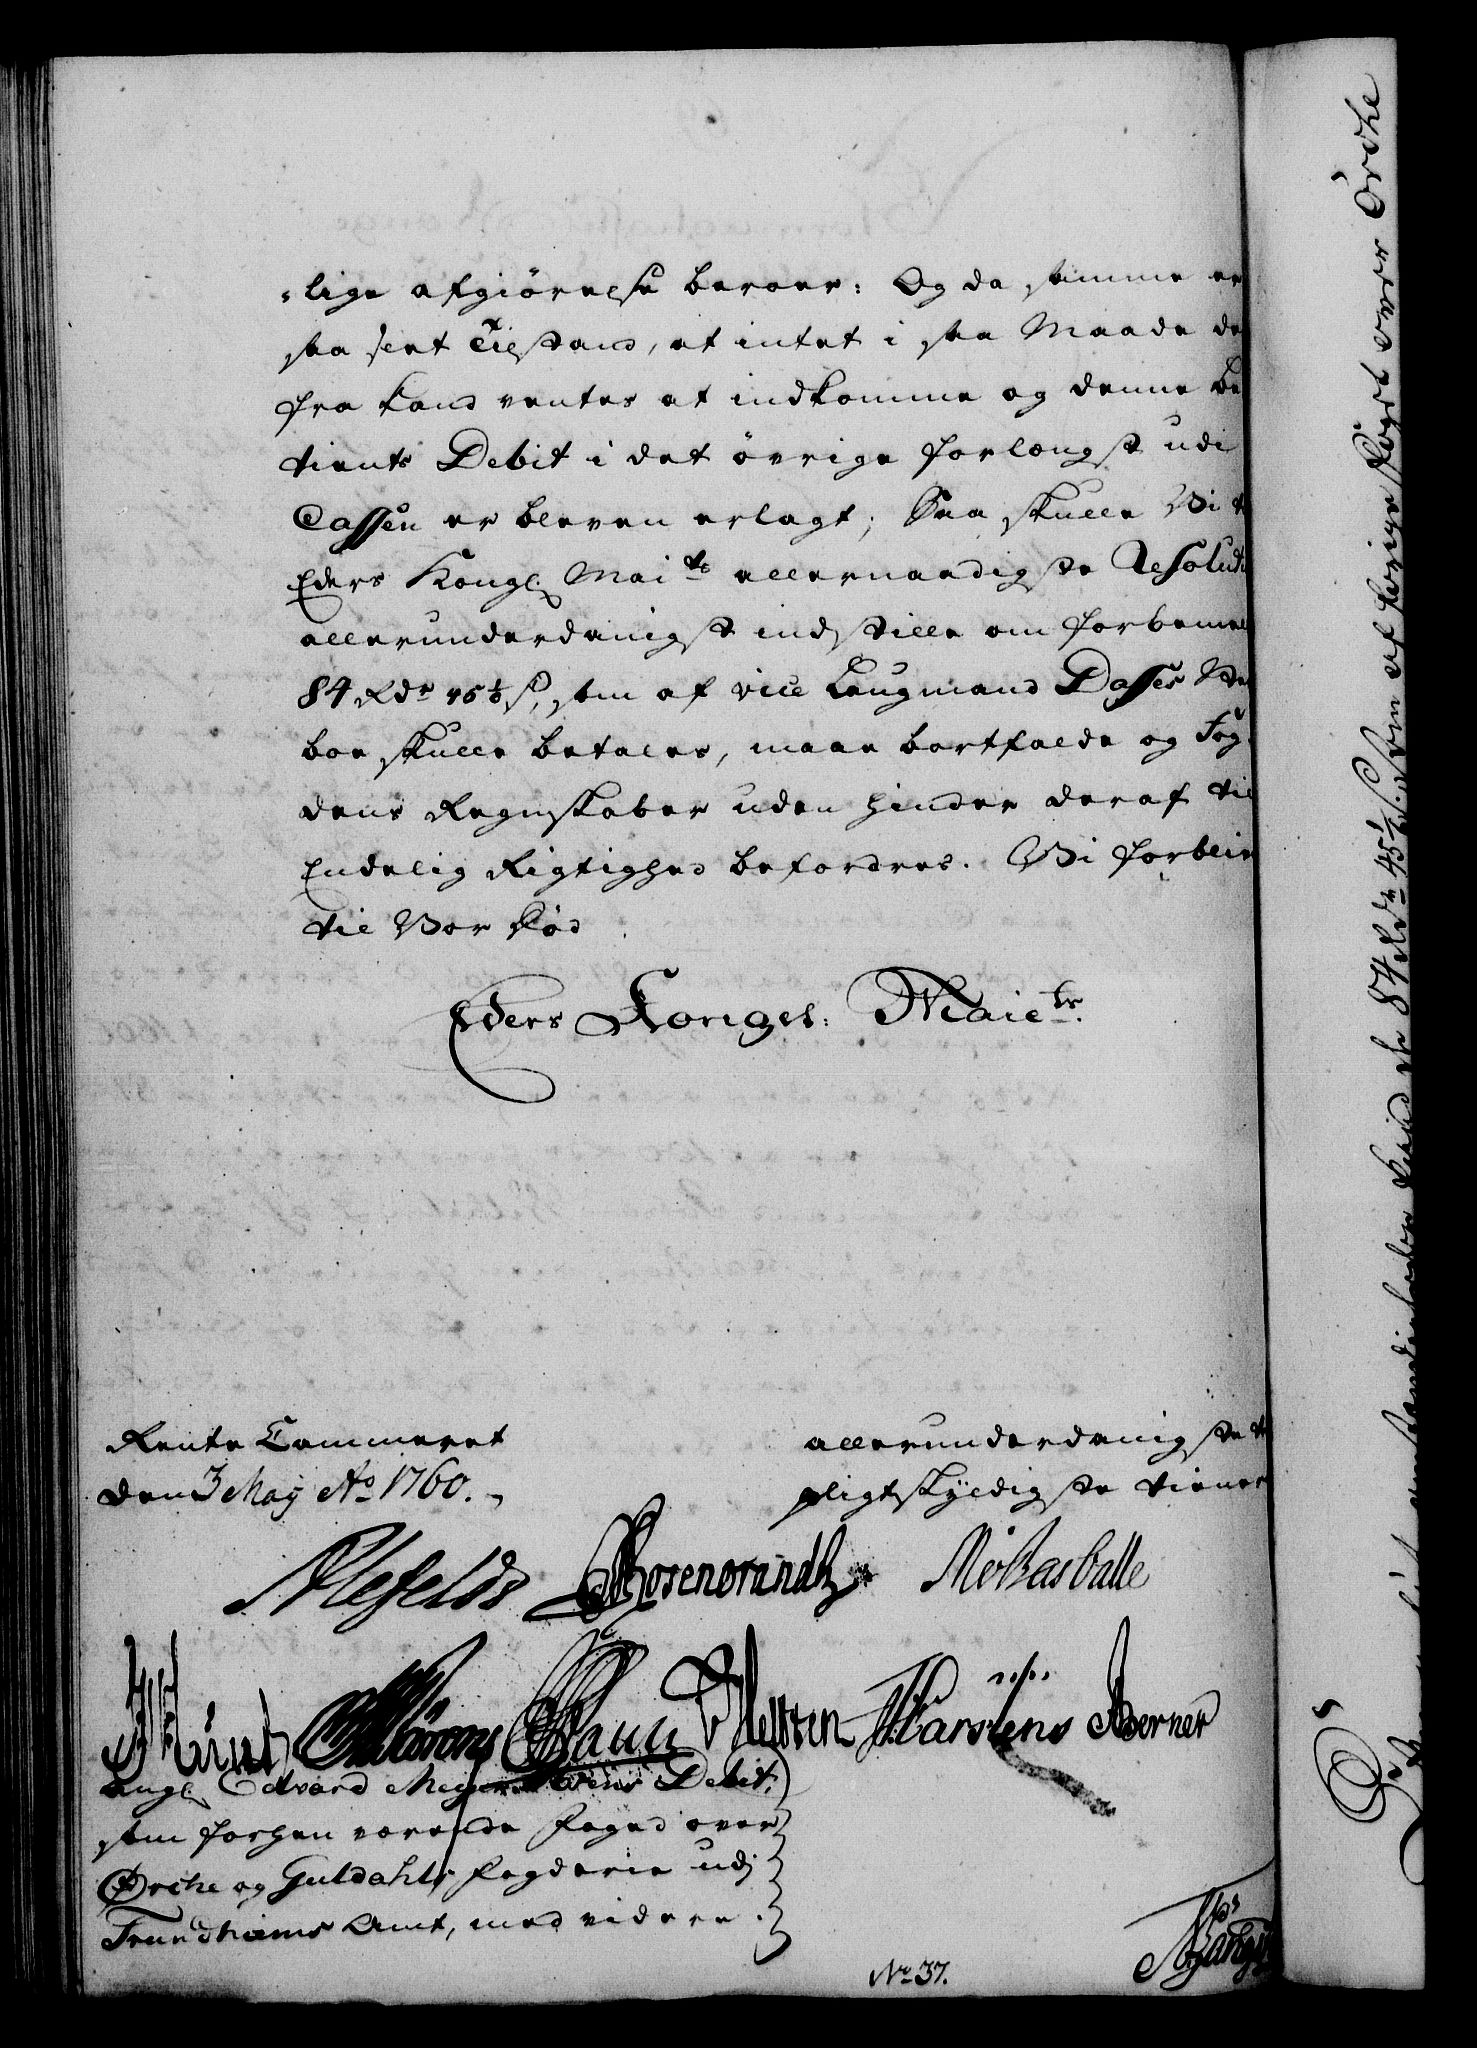 -lige afgiörelse beroer: Og da samme er
saa slet Tilstand, at intet i saa Maade de
fra kand ventes at indkomme og denne be
tients Debit i det övrige forlængst udi
Cassen er bleven erlagt; Saa skulle Vi t
Eders Kongl. Maits allernaadigste Resoluti
allerunderdanigst indstille om forbemel
84 Rdr 45½ s, som af vice Laugmand Dasses Ster
boe skulle betales, maae bortfalde og Fog
dens Regnskaber uden hinder deraf til
Endelig Rigtighed befordres. Vi forbliv
til Vor Död
Eders Kongel: Maiets.
Rente Cammeret
den 3 Maij Ao 1760.
allerunderdanigste
pligtskyldigste tiener
Alefeldt Rosencrandtz
Holsten Karstens Berner
angl. Edvard Meyer Debit,
som forhen værende Foged over
Örche og Guldahls Fogderie udj
Trundhiems Amt, med videre.
No 37.
84 Rdr 45½ s. som af forige Foget over Örche